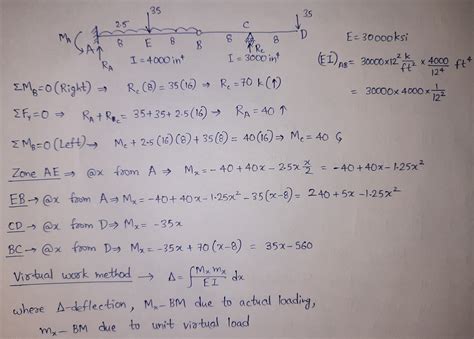 35 35
2.5 C
M_A A 8 E 8 B 8 8 D
R_A I = 4000 in⁴ I = 3000 in⁴ R_c
E = 30000 ksi
(EI)_AB = 30000×12² k/ft² × 4000/12⁴ ft⁴
= 30000 × 4000 × 1/12²
ΣM_B=0 (Right) → R_c(8) = 35(16) → R_c = 70 k(↑)
ΣF_y=0 → R_A + R_c = 35+35+2.5(16) → R_A = 40↑
ΣM_B=0 (Left) → M_c + 2.5(16)(8) + 35(8) = 40(16) → M_c = 40
Zone AE → @x from A → M_x = -40+40x - 2.5x x/2 = -40+40x-1.25x²
EB → @x from A → M_x = -40+40x-1.25x²-35(x-8) = 240+5x-1.25x²
CD → @x from D → M_x = -35x
BC → @x from D → M_x = -35x + 70(x-8) = 35x-560
Virtual work method → Δ = ∫ M_x m_x / EI dx
where Δ - deflection, M_x - BM due to actual loading,
m_x - BM due to unit virtual load